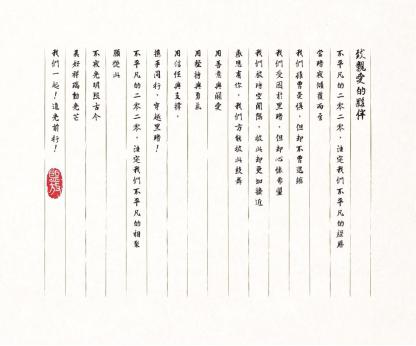 致親愛的夥伴
不平凡的二零二零，注定我們不平凡的經歷
當暗夜傾覆而至
我們雖曾畏懼，但卻不曾退縮
我們受困於黑暗，但卻心懷希望
我們被時空間隔，彼此卻更加接近
感恩有你，我們方能彼此鼓舞
用善意與關愛
用堅持與勇氣
用信任與支撐，
攜手同行，穿越黑暗！
不平凡的二零二零，注定我們不平凡的相聚
願從此
不夜光明照古今
美好祥瑞動光芒
我們一起！追光前行！